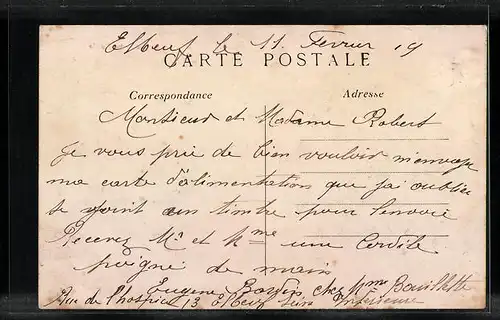 Elbeuf le 11 Fevrier 19
CARTE POSTALE
Correspondance
Adresse
Monsieur et Madame Robert
Je vous prie de bien vouloir m'envoyer
ma carte d'alimentation que j'ai oublier
Je joint un timbre pour l'envoie
Recevez Mr et Mme une Cordile
poigné de main
Eugene chez Mme Bouillette
Rue de l'hospice 13 Elbeuf Seine Inferieure